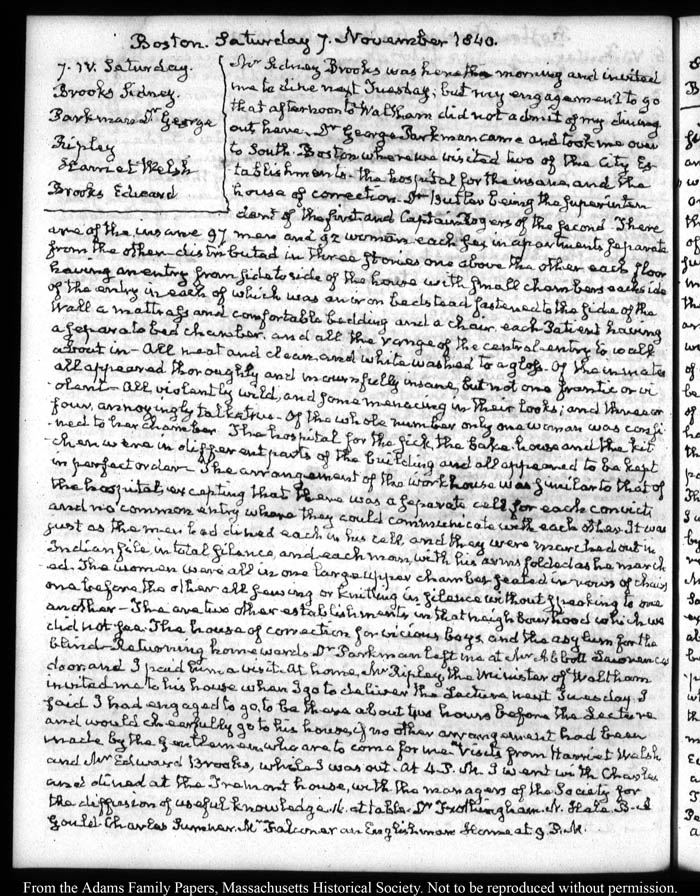 Boston. Saturday 7. November 1840.
7. IV. Saturday.
Brooks Sidney.
Parkman Dr George
Ripley
Harriet Welsh
Brooks Edward
Mr Sidney Brooks was here this morning and invited
me to dine next Tuesday; but my engagement to go
that afternoon to Waltham did not admit of my dining
out here. Dr George Parkman came and took me over
to South-Boston where we visited two of the City Es-
tablishments. the hospital for the insane, and the
house of correction. Dr Butler being the Superinten-
dent of the first and Captain Rogers of the second. There
are of the insane 97 men and 92 women each sex in apartments separate
from the other distributed in three stories one above the other each floor
having an entry from side to side of the house with small chambers each side
of the entry in each of which was an iron bedstead fastened to the side of the
wall a mattrass and comfortable bedding and a chair each Patient having
a separate bed chamber, and all the range of the central entry to walk
about in— All neat and clean, and white washed to a gloss. Of the inmates
all appeared thoroughly and mournfully insane, but not one frantic or vi-
olent— All violently wild, and some menacing in their looks; and three or
four, annoyingly talkative. Of the whole number only one woman was confi-
ned to her chamber. The hospital for the sick, the bake-house and the kit-
chen were in different parts of the building and all appeared to be kept
in perfect order— The arrangement of the workhouse was similar to that of
the hospital, excepting that there was a separate cell for each convict
and no common entry where they could communicate with each other. It was
just as the men had dined each in his cell and they were marched out in
Indian file, in total silence, and each man, with his arms folded as he march-
ed. The women were all in one large upper chamber seated in rows of chairs
one before the other all sewing or knitting in silence without speaking to one
another— The are two other establishments in that neighbourhood which we
did not see. The house of correction for vicious boys, and the asylum for the
blind. Returning homewards Dr Parkman left me at Mr Abbott Lawrence's
door and I paid him a visit. At home, Mr Ripley the Minister of Waltham
invited me to his house when I go to deliver the Lecture next Tuesday. I
said I had engaged to go, to be there about two hours before the Lecture
and would cheerfully go to his house, if no other arrangement had been
made by the Gentlemen who are to come for me. Visits from Harriet Welsh
and Mr Edward Brooks, while I was out. At 4. P.M. I went with Charles
and dined at the Tremont house, with the managers of the Society for
the diffusion of useful knowledge. at table. Dr Frothingham. N. Hale B. A
Gould Charles Sumner. Mr Falconer an Englishman Home at 9 P.M.
From the Adams Family Papers, Massachusetts Historical Society. Not to be reproduced without permission.